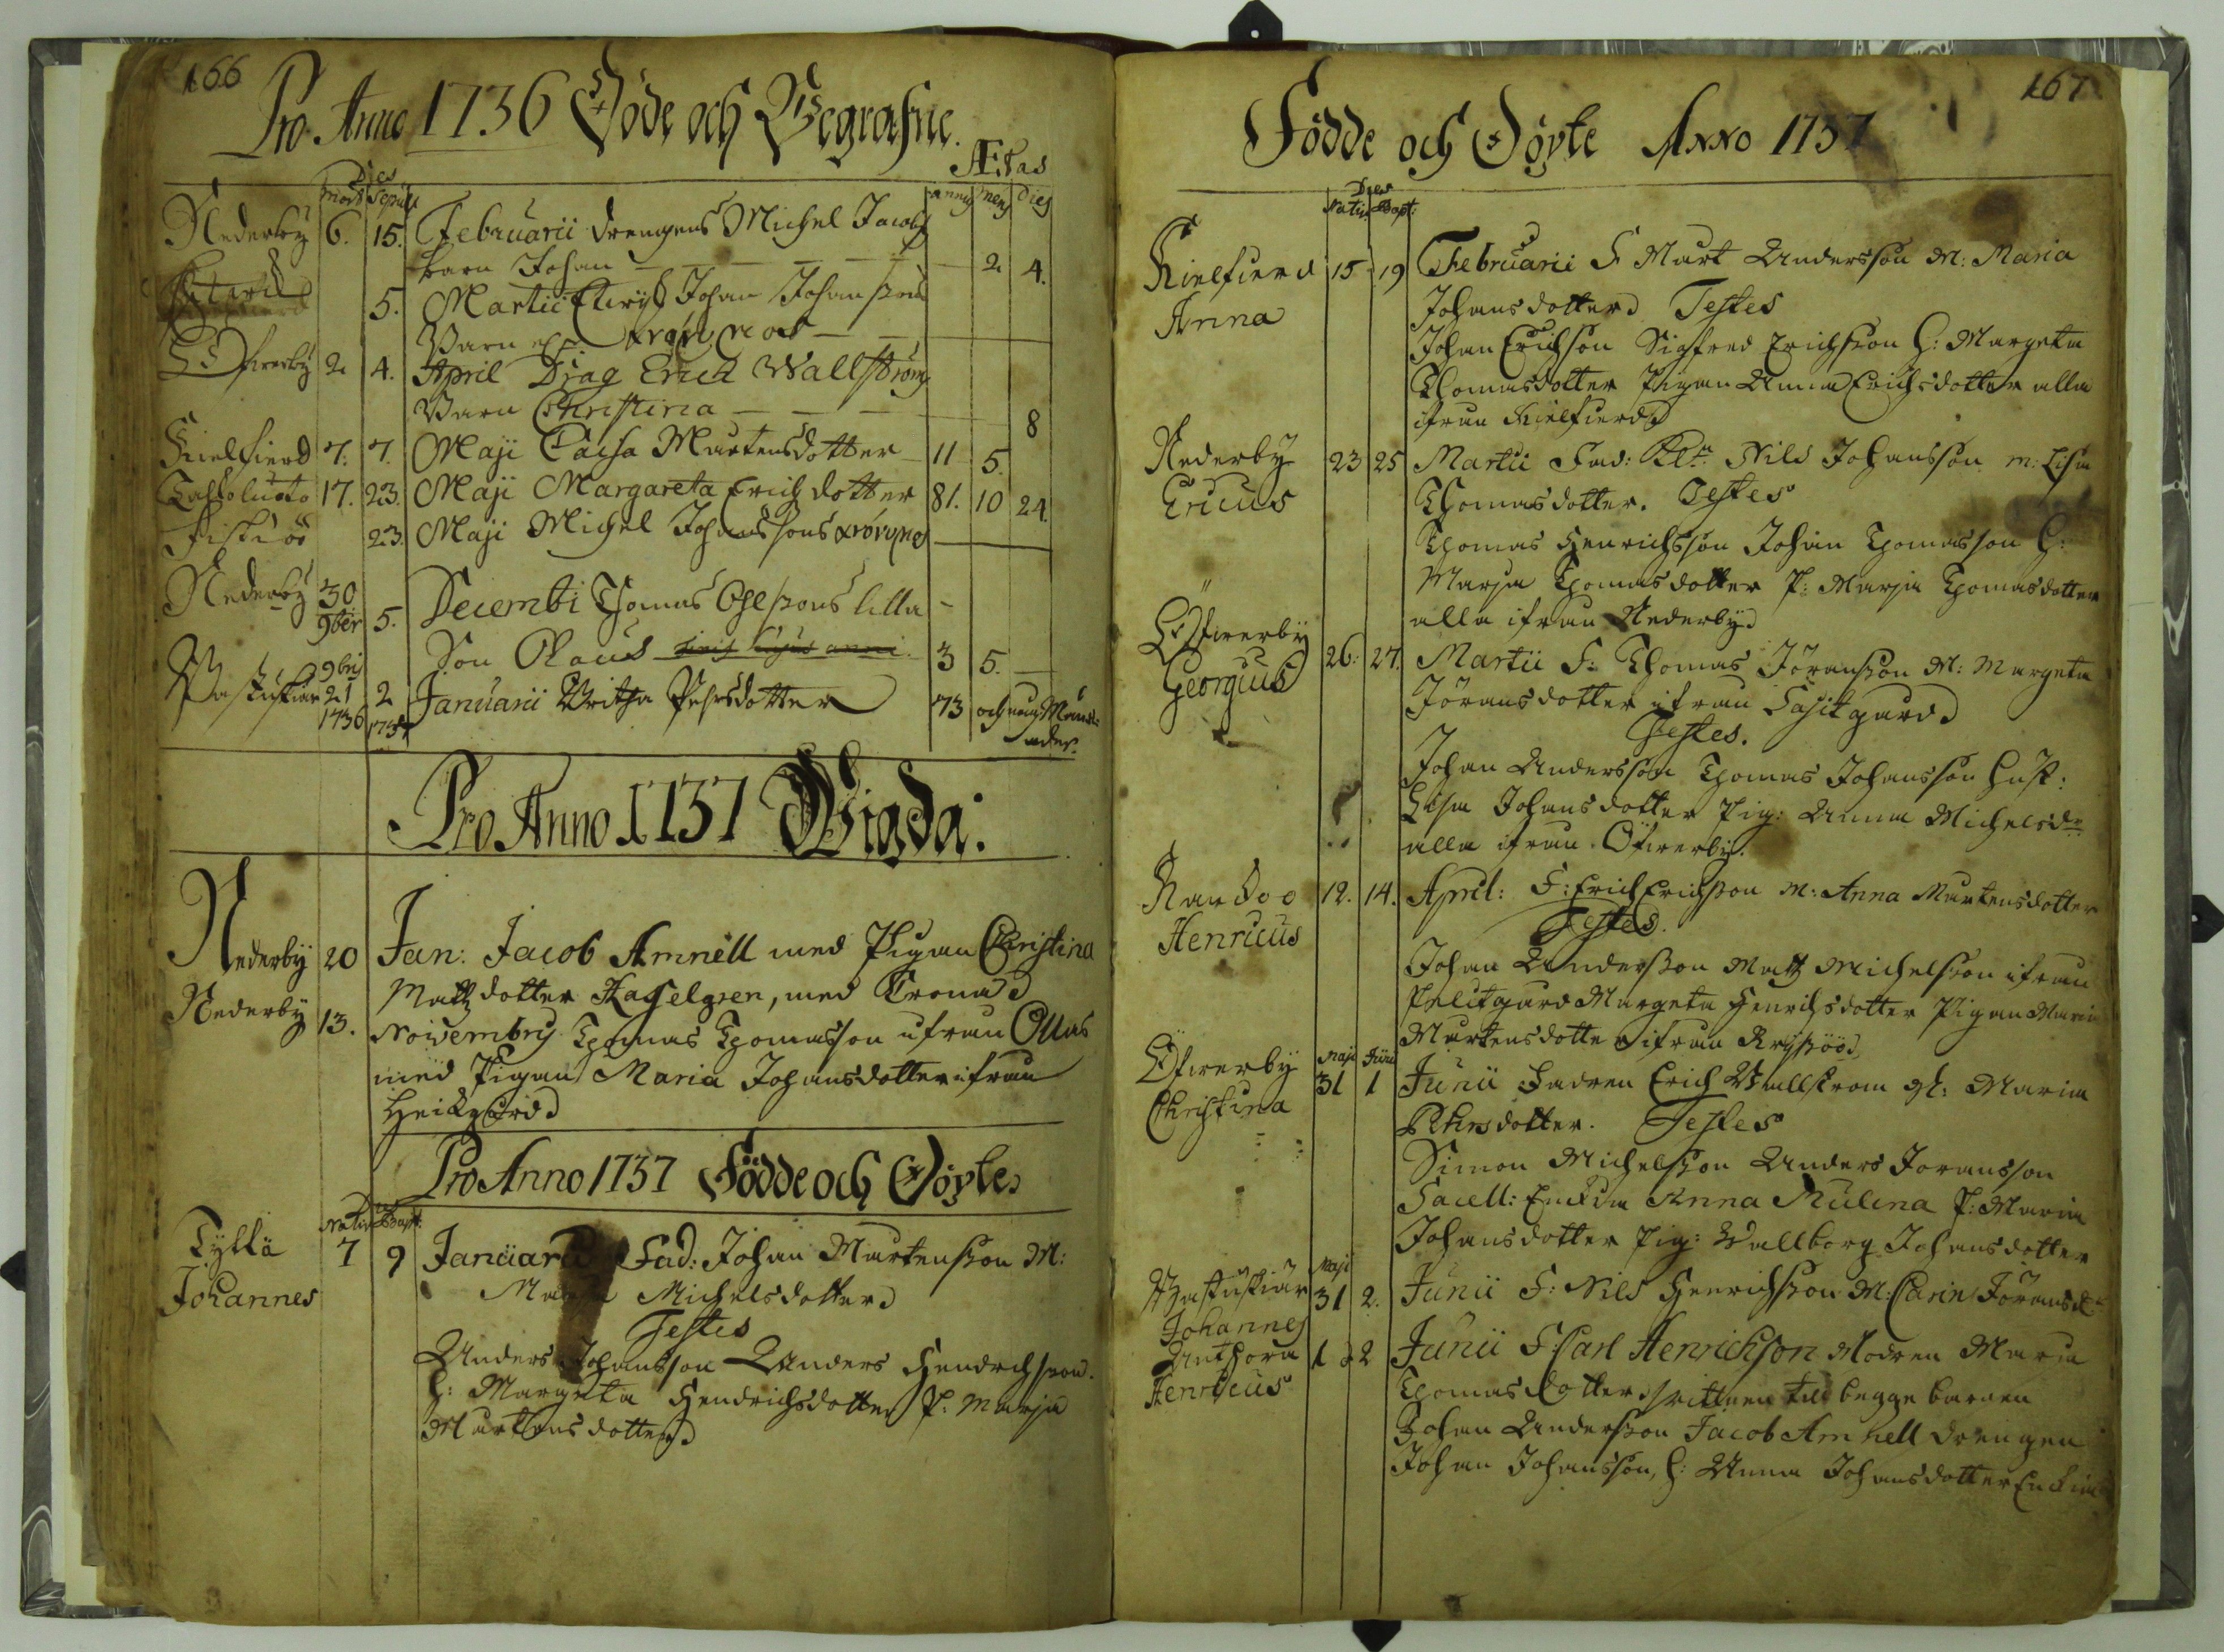 166
Pro Anno 1736 Döde och Begrafne.
Ætas
Dies
mort Sepult
annus mens dies
Nederby 6. 15. Februarii drengens Michel Jacobs
barn Johan 2 4.
5. Martii Johan Johanssons
Barn
Öfwerby 2 4. April Erich Wallström
Barn Christina 8
Kielfierd 7. 7. Maji Caisa Mårtensdotter 11 5.
17. 23. Maji Margareta Erichsdotter 81. 10 24.
23. Maji Michel Johanssons
Nederby 30 9ber 5. Decembr Thomas lilla
Son Olaus 3 5.
9bris
21 2 Januarii Britha Pehrsdotter 73 och
1736 1737
Pro Anno 1737 Wigda:
Nederby 20 Jan: Jacob Amnell med Pigan Christina
Matzdotter Haselgren, med
Nederby 13. Novembris Thomas Thomasson ifrån
med Pigan Maria Johansdotter ifrån
Heikgård
Pro Anno 1737 Födde och Döpte
Nativ Bapt:
7 9 Januarii Fad: Johan Mårtensson M:
Johannes
Michelsdotter
Testes
Anders Johansson Anders Hendrichsson.
H: Margeta Hendrichsdotter P: Marja
Mårtensdotter
167
Födde och Döpte Anno 1737
Dies
Nativ Bapt:
Kielfierd 15 19 Februarii F Mårt Andersson M: Maria
Anna
Johansdotter Testes
Johan Erichson Sigfred Erichsson H: Margeta
Thomasdotter Pigan Anna Erichsdotter alla
ifrån Kielfierd
Nederby 23 25 Martii Fad: Nils Johansson m: Lisa
Ericus
Thomasdotter. Testes
Thomas Henrichsson Johan Thomasson H:
Marja Thomasdotter P: Marja Thomasdotter
alla ifrån Nederby
Öfwerby 26: 27. Martii F: Thomas Jöransson M: Margeta
Georgius
Jöransdotter ifrån
Testes.
Johan Andersson Thomas Johansson Hust:
Lisa Johansdotter Pig: Anna Michelsdr
alla ifrån Öfwerby.
Randöö 12. 14. April: F: Erich Erichsson M: Anna Mårtensdotter
Henricus
Testes.
Johan Andersson Matz Michelsson ifrån
Margeta Henrichsdotter Pigan Maria
Mårtensdotter ifrån
Maji Junii
Öfwerby 31 1 Junii Fadren Erich Wallström M: Maria
Christina
Pehrsdotter. Testes
Simon Michelsson Anders Jöransson
Sacell: Enckia Anna P: Maria
Johansdotter Pig: Wallborg Johansdotter
Maji
31 2. Junii F: Nils Henrichsson M: Carin Jöransdr
Johannes
1 2 Junii F Carl Henrichson Modren Maria
Henricus
Thomasdotter, wittnen till begge barnen
Johan Andersson Jacob Amnell drengen
Johan Johansson, H: Anna Johansdotter Enckia